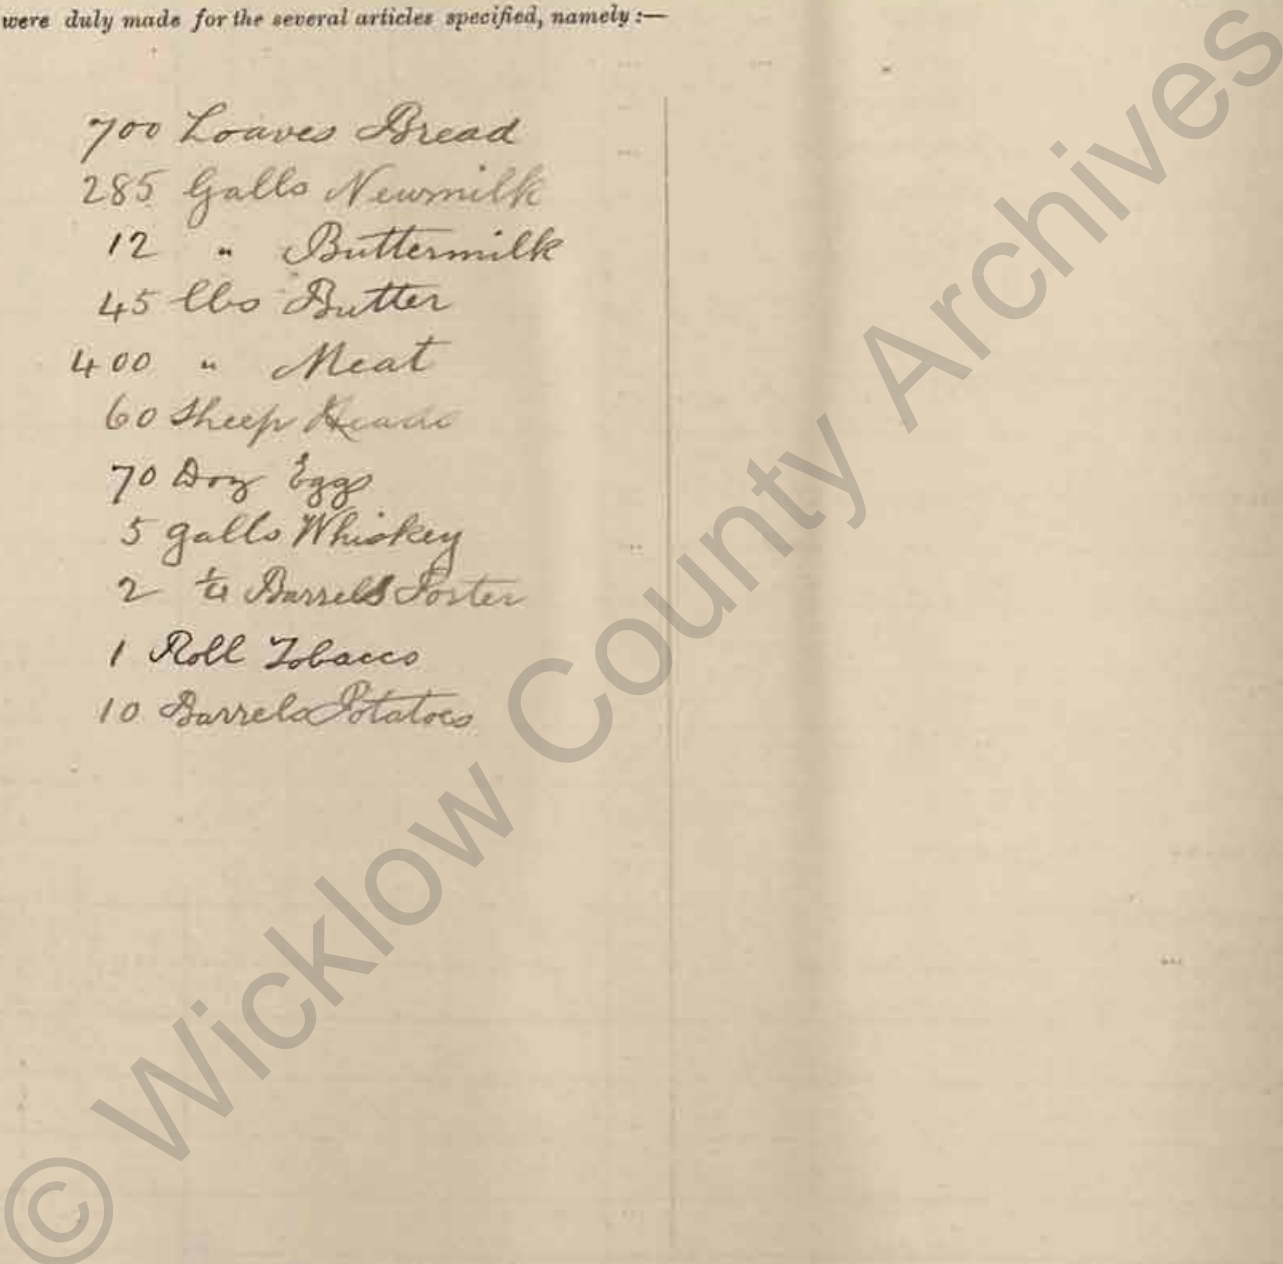 were duly made for the several articles specified, namely :—
700 Loaves Bread
285 Galls Newmilk
12 " Buttermilk
45 lbs Butter
400 " Meat
60 Sheep Heads
70 Doz Eggs
5 galls Whiskey
2 ¼ Barrells Porter
1 Roll Tobacco
10 Barrels Potatoes
© Wicklow County Archives